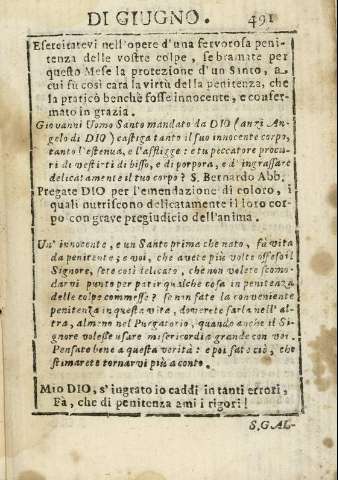 DI GIUGNO. 491
Esercitatevi nell'opere d'una fervorosa peni-
tenza delle vostre colpe, se bramate per
questo Mese la protezione d'un Santo, a
cui fu così cara la virtù della penitenza, che
la praticò benchè fosse innocente, e confer-
mato in grazia.
Giovanni Uomo Santo mandato da DIO (anzi An-
gelo di DIO) castiga tanto il suo innocente corpo,
tanto l'estenua, e l'affligge: e tu peccatore procu-
ri di vestirti di bisso, e di porpora, e d'ingrassare
delicatamente il tuo corpo? S. Bernardo Abb.
Pregate DIO per l'emendazione di coloro, i
quali nutriscono delicatamente il loro cor-
po con grave pregiudicio dell'anima.
Un' innocente, e un Santo prima che nato, fa vita
da penitente; e voi, che avete più volte offeso il
Signore, sete così delicato, che non volete scomo-
darvi punto per patir qualche cosa in penitenza
delle colpe commesse? se non fate la conveniente
penitenza in questa vita, dovrete farla nell' al-
tra, almeno nel Purgatorio, quando anche il Si-
gnore volesse usare misericordia grande con voi.
Pensate bene a questa verità: e poi fate ciò, che
stimarete tornarvi più a conto.
Mio DIO, s'ingrato io caddi in tanti errori,
Fà, che di penitenza ami i rigori!
S. GAL-